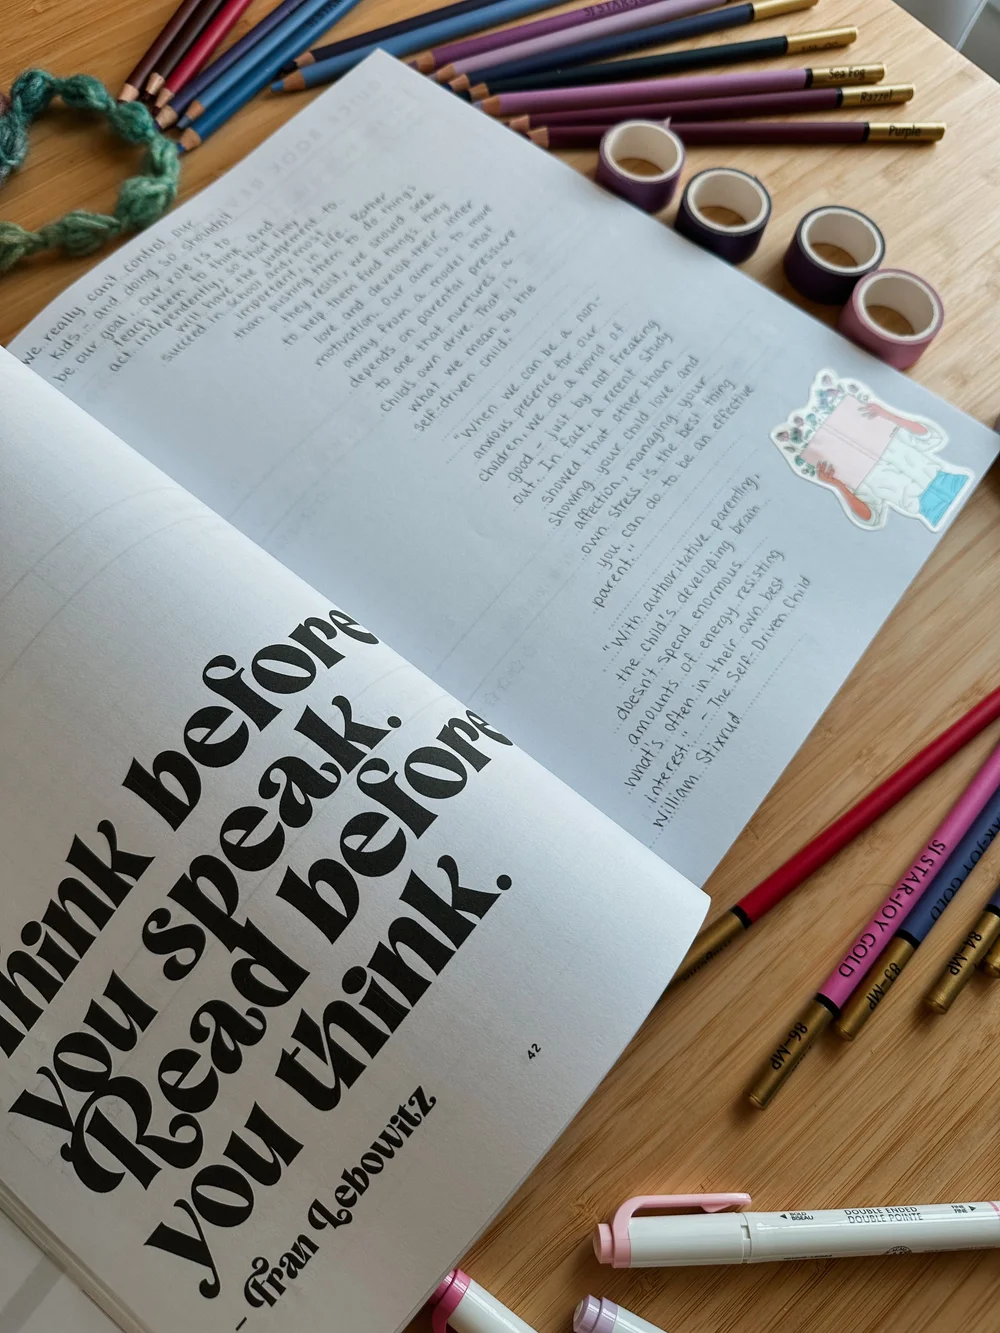 we really can't control our
kids - and doing so shouldn't
be our goal... our role is to
teach them to think and
act independently, so that they
will have the judgement to
succeed in school and, most
important, in life. Rather
than pushing them to do things
they resist, we should seek
to help them find things they
love and develop their inner
motivation. Our aim is to move
away from a model that
depends on parental pressure
to one that nurtures a
child's own drive. That is
what we mean by the
self-driven child."
"When we can be a non-
anxious presence for our
children, we do a world of
good - just by not freaking
out. In fact, a recent study
showed that other than
showing your child love and
affection, managing your
own stress is the best thing
you can do to be an effective
parent."
"With authoritative parenting,
the child's developing brain
doesn't spend enormous
amounts of energy resisting
what's often in their own best
interest." - The Self-Driven Child
William Stixrud
Think before
you speak.
Read before
you think.
- Fran Lebowitz
42
Sea Fog
Purple
SI STAR-JOY GOLD
83-MP
84-MP
86-MP
BOLD
BISEAU
DOUBLE ENDED
DOUBLE POINTE
FINE
FINE